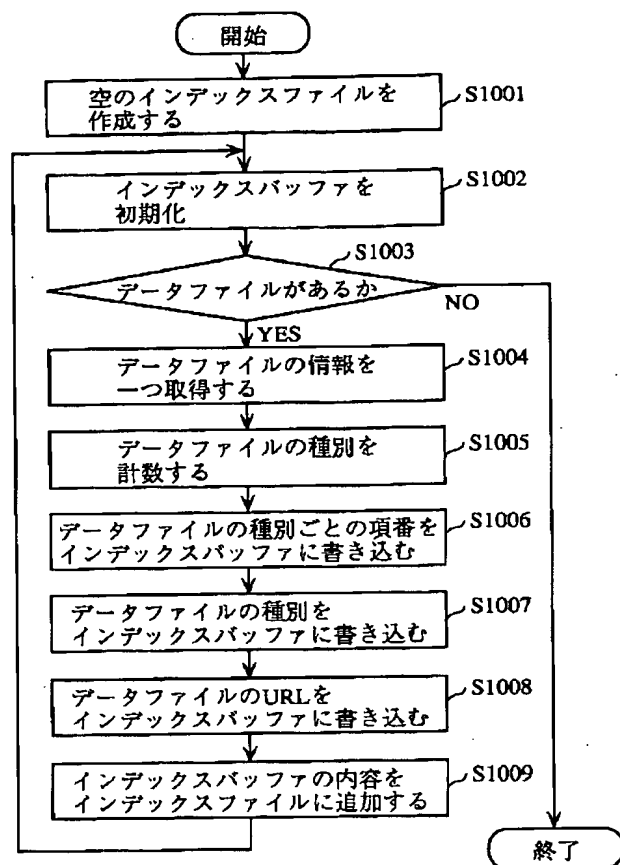 開始
空のインデックスファイルを
作成する
S1001
インデックスバッファを
初期化
S1002
データファイルがあるか
S1003
NO
YES
データファイルの情報を
一つ取得する
S1004
データファイルの種別を
計数する
S1005
データファイルの種別ごとの項番を
インデックスバッファに書き込む
S1006
データファイルの種別を
インデックスバッファに書き込む
S1007
データファイルのURLを
インデックスバッファに書き込む
S1008
インデックスバッファの内容を
インデックスファイルに追加する
S1009
終了